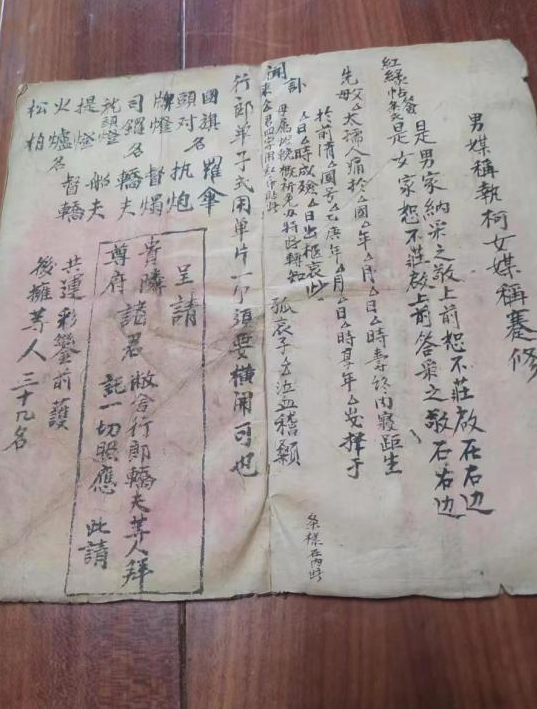 男媒稱執柯女媒稱蹇修
是男家納采之敬上前恕不莊啟在右边
紅綠帖
是女家恕不莊啟上前答采之敬石右边
先母△太孺人痛於△國△年△月△日△時壽終內寢距生
於前清△國号△乙庚年△月△日△時享年△歲擇于
△日△時成殮△日出柩哀此
訃
聞
孤哀子△△泣血稽顙
条樣在內時
行郎单子式用单片一个須要横開可也
國旗 羅傘
頭对名 执炮
牌燈 督燭
司鑼名 轎夫
提燈 夫
火爐名 督轎
松柏
呈請
尊府 諸君 敝舍行郎轎夫等人拜
託一切照應 此請
共連彩鑾前護
後擁等人三十九名